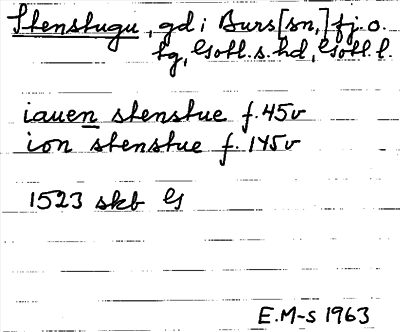 Stenstugu, gd i Burs [sn,] fj. o.
tg, Gotl. s. hd, Gotl. l.
iauen stenstue f. 45v
ion stenstue f. 145v
1523 skb G
E.M-s 1963